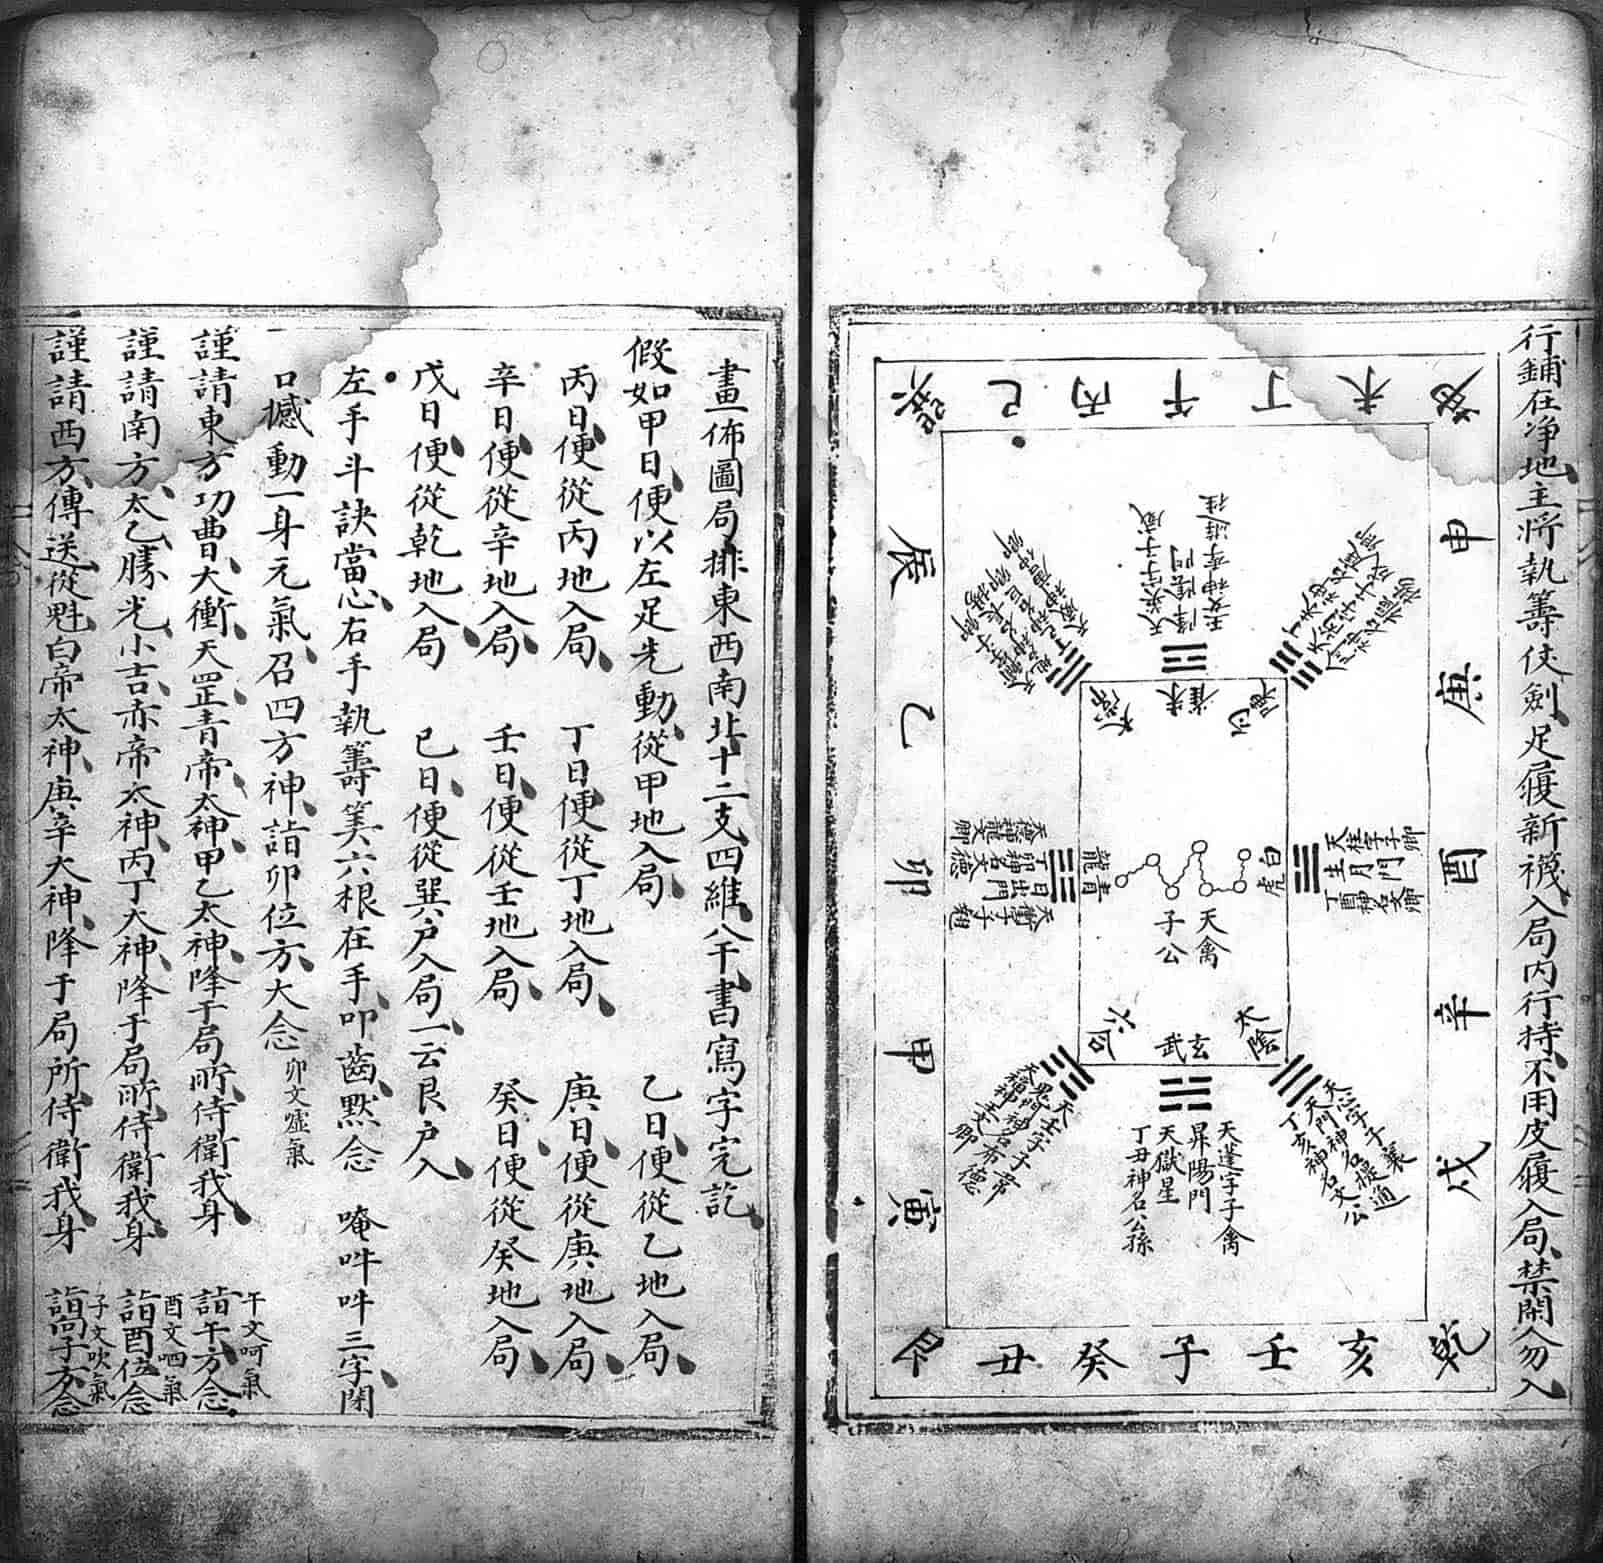 行鋪在净地主將執籌伏劍足履新襪入局内行持不用皮履入局禁閑人勿入
巽 巳 丙 午 丁 未 坤
申 庚 酉 辛 戌
乾 亥 壬 子 癸 丑 艮
寅 甲 卯 乙 辰
朱雀
青龍
白虎
玄武
太陰
六合
天禽
子公
天柱字子卿
生月門
丁酉神名文卿
天蓬字子禽
昇陽門
天獄星
丁丑神名公孫
天心字子襄
天門神名提通
丁亥神名文公
天任字子常
畫佈圖局排東西南北十二支四維八干書寫字完訖
假如甲日便以左足先動從甲地入局 乙日便從乙地入局
丙日便從丙地入局 丁日便從丁地入局 庚日便從庚地入局
辛日便從辛地入局 壬日便從壬地入局 癸日便從癸地入局
戊日便從乾地入局 巳日便從巽户入局一云艮户入
左手斗訣當心右手執籌筭六根在手叩齒默念 唵吽吽三字閉
口撼動一身元氣召四方神詣卯位方大念 卯文噓氣
謹請東方功曹大衝天罡青帝太神甲乙太神降于局所侍衛我身 詣午方念 午文呵氣
謹請南方太乙勝光小吉赤帝太神丙丁大神降于局所侍衛我身 詣酉位念 酉文呬氣
謹請西方傳送從魁白帝太神庚辛大神降于局所侍衛我身 詣向子方念 子文吹氣